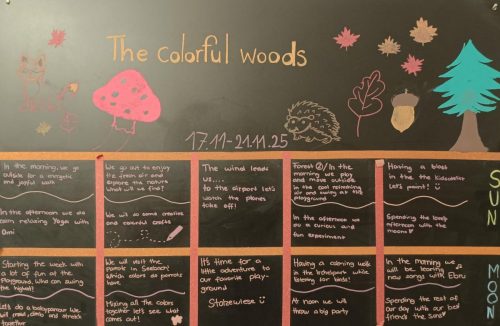 The colorful woods
17.11-21.11.25
In the morning, we go
outside for a energetic
and joyful walk
In the afternoon we do
calm relaxing Yoga with
We go out to enjoy
the fresh air and
explore the nature
what will we find?
We will do some creative
and colorful crafts
The wind leads
us....
to the airport let's
watch the planes
take off!
Forest In the morning
we play
and move outside
in the cool air
and swing at the
playground
In the afternoon we
do a curious and
fun experiment
Having a blast
in the the kidsatelier
Let's paint!
Spending the lovely
afternoon with the
moons
SUN
Starting the week with
a lot of fun at the
Playground, who can swing
the highest?
Let's do a babypower We
climb and stretch
together
We will visit the
parrots in Seebach!
Which colors do parrots
have
Mixing all the colors
together let's see what
comes out!
It's time for a
little adventure to
our favorite play-
ground
Stolzewiese
Having a calming walk
in the
listening for birds!
At noon we will
throw a big party
In the morning we
will be learning
new songs with Ebru
Spending the rest of
our day with our best
friends the Suns
MOON